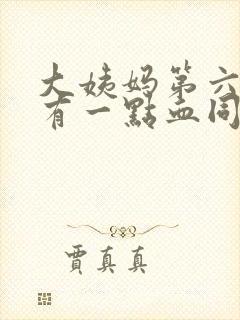 大姨妈第六
有一點血同
賈真真